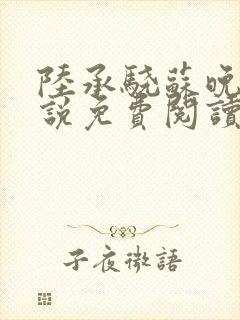 陸承驍蘇晚
說免費閱讀
子夜微語